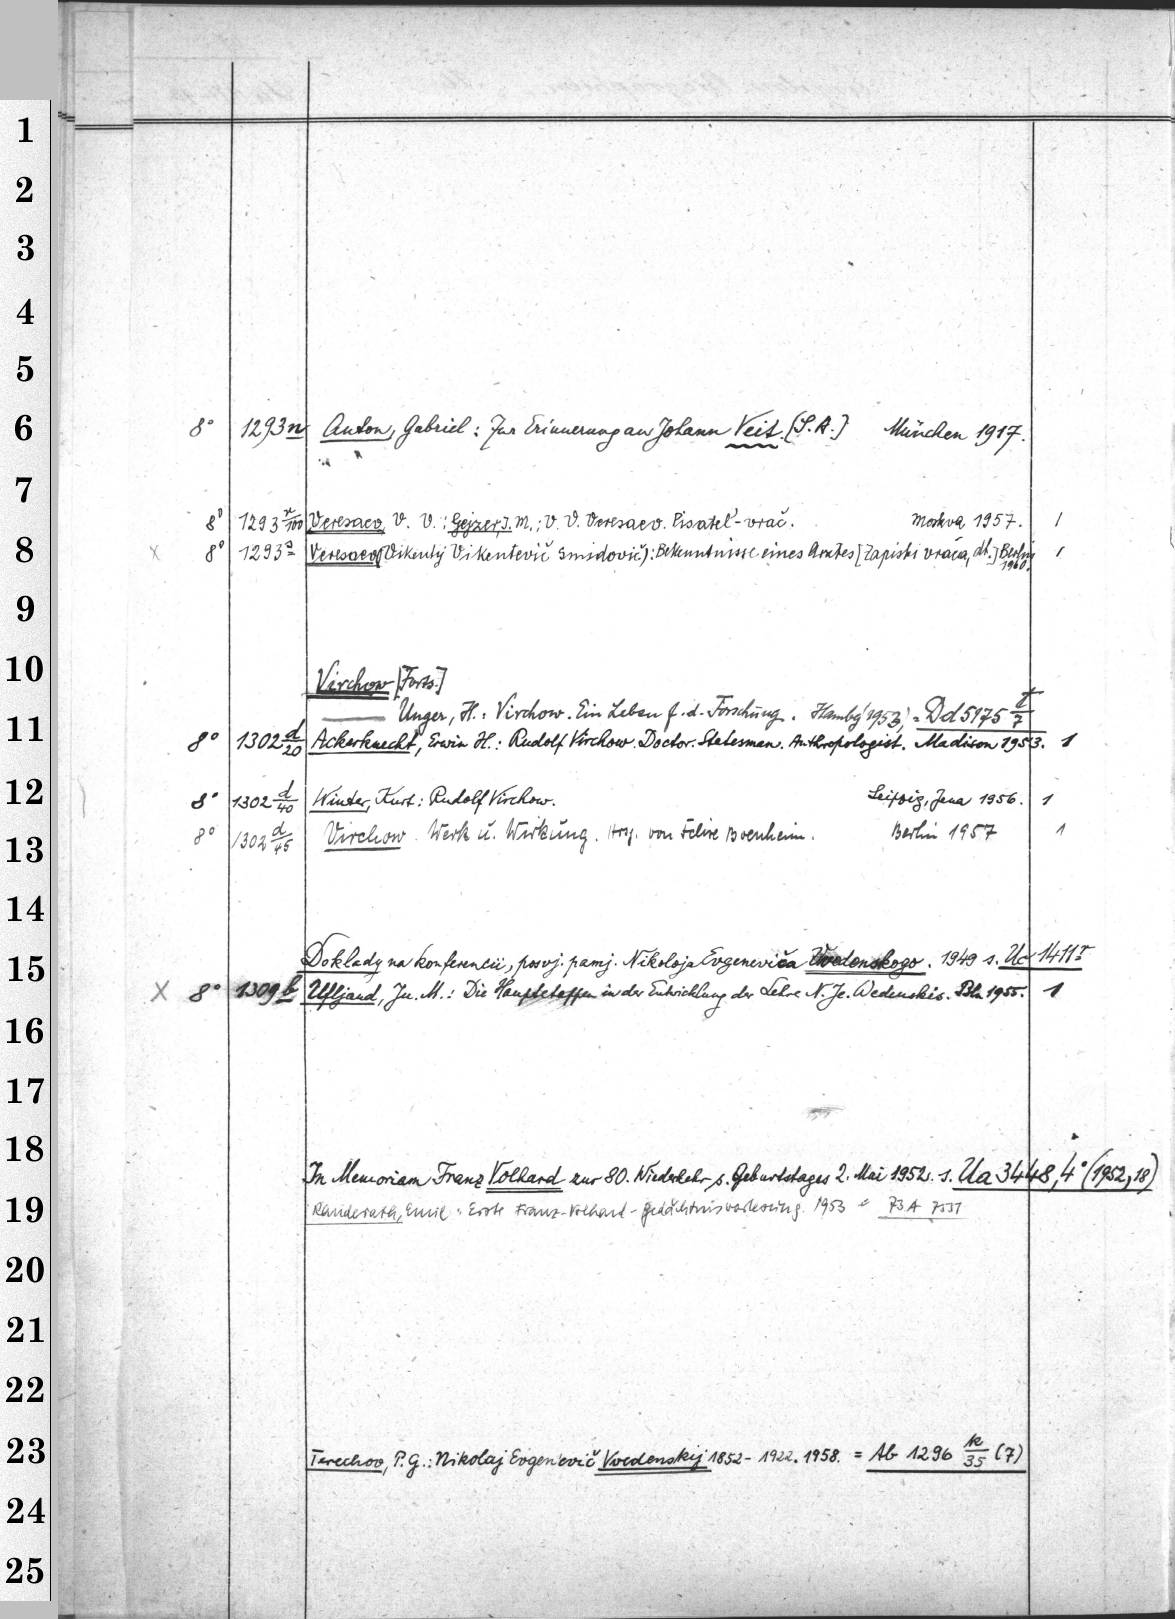 1
2
3
4
5
6
8° 1293n Anton, Gabriel: Zur Erinnerung an Johann Veit. (S.A.] München 1917.
7
8° 1293 r/100 Veresaev, V. V.: Gejzer, I. M.: V. V. Veresaev. Pisatel'-vrač. Moskva 1957. 1
8
x 8° 1293 Veresaev (Vikentij Vikentevič Smidovič): Bekenntnisse eines Arztes [Zapiski vrača, dt.] Berlin 1960. 1
9
10
Virchow [Forts.]
Unger, H.: Virchow. Ein Leben f. d. Forschung. Hambg (1953) = Dd 5175 t/7
11
8° 1302 d/20 Ackerknecht, Erwin H.: Rudolf Virchow. Doctor. Statesman. Anthropologist. Madison 1953. 1
12
8° 1302 d/40 Winter, Kurt: Rudolf Virchow. Leipzig, Jena 1956. 1
8° 1302 d/45 Virchow. Werk u. Wirkung. Hrg. von Felix Boenheim. Berlin 1957 1
13
14
Doklady na konferencii, posvj. pamj. Nikolaja Evgeneviča Vvedenskogo. 1949 s. Uc 1411r
15
X 8° 1309 b Ufljand, Ju. M.: Die Hauptetappen in der Entwicklung der Lehre N. Je. Wedenskis. Bln 1955. 1
16
17
18
In Memoriam Franz Volhard zur 80. Wiederkehr s. Geburtstages 2. Mai 1952. s. Ua 3448, 4° (1952, 18)
19
Randerath, Emil: Erste Franz-Volhard-Gedächtnisvorlesung. 1953 = 73 A 7531
20
21
22
23
Terechov, P. G.: Nikolaj Evgen'evič Vvedenskij 1852-1922. 1958. = Ab 1296 k/35 (7)
24
25